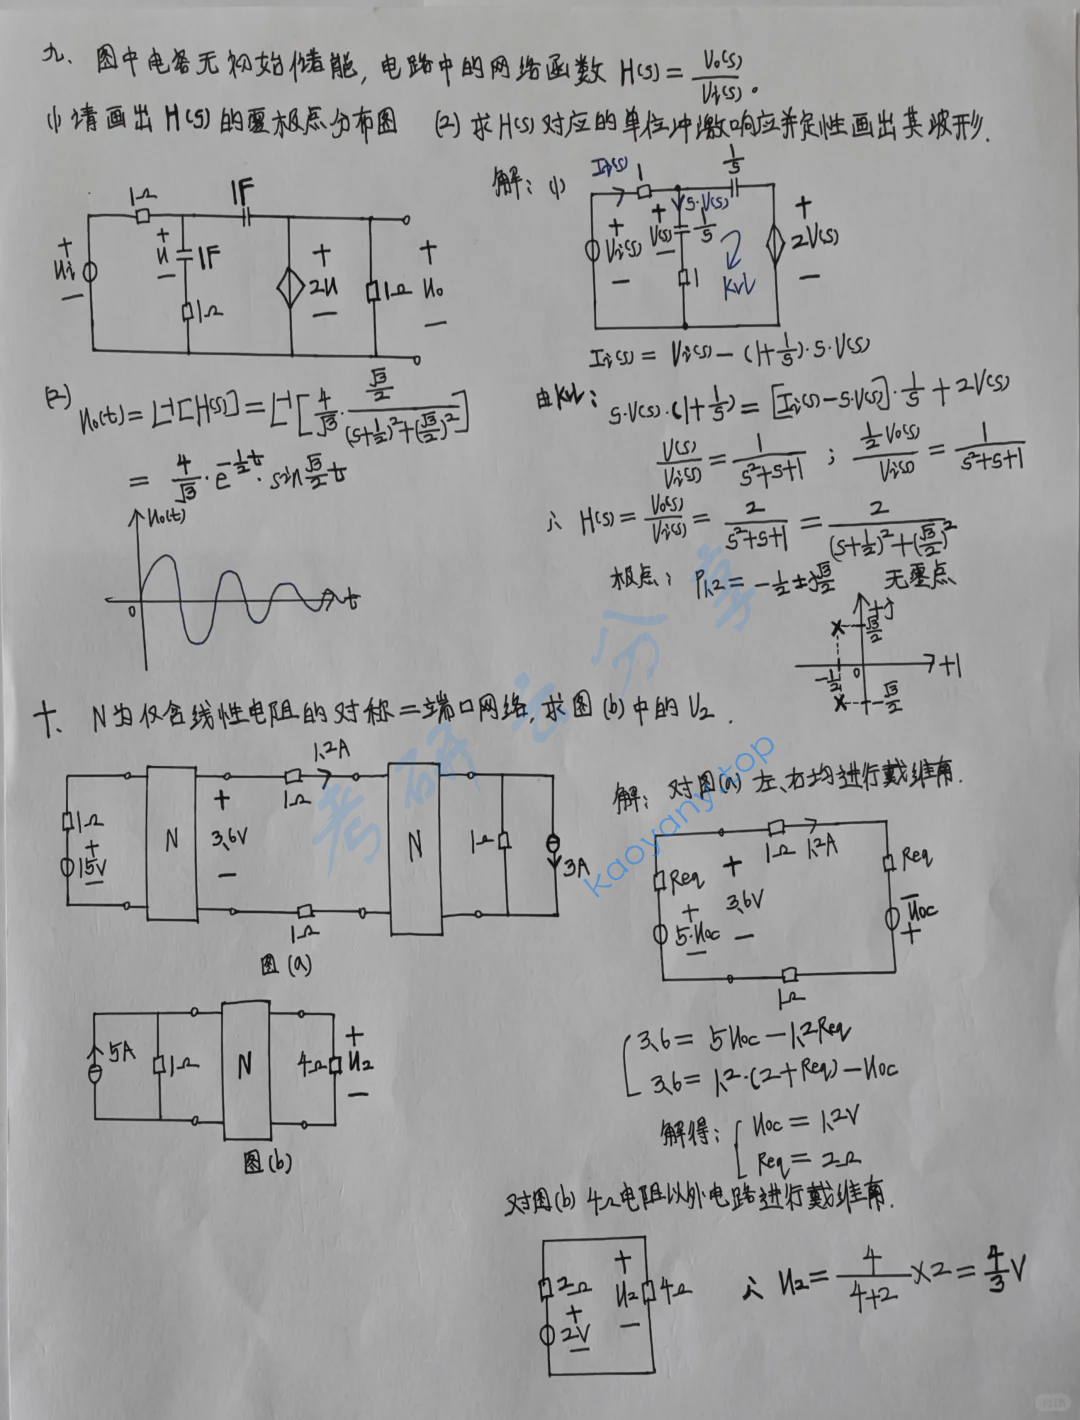 九、图中电容无初始储能,电路中的网络函数 H(s) = V₀(s)/Vᵢ(s)。
(1) 请画出H(s)的零极点分布图 (2) 求H(s)对应的单位冲激响应并定性画出其波形.
1Ω
1F
+
Ui
−
+
U
−
1F
1Ω
+
2U
−
1Ω
+
U₀
−
解: (1)
Ii(s)
1
1/s
+
Vi(s)
−
+
V(s)
−
s·V(s)
1/s
1
KVL
+
2V(s)
−
Ii(s) = Vi(s) − (1+1/s)·s·V(s)
由KVL: s·V(s)·(1+1/s) = [Ii(s)−s·V(s)]·1/s + 2V(s)
V(s)/Vi(s) = 1/(s²+s+1) ; ½V₀(s)/Vi(s) = 1/(s²+s+1)
∴ H(s) = V₀(s)/Vi(s) = 2/(s²+s+1) = 2/((s+½)²+(√3/2)²)
极点: P₁,₂ = −½ ± j√3/2 无零点
+j
√3/2
−½
0
+1
−√3/2
(2) U₀(t) = L⁻¹[H(s)] = L⁻¹[4/√3 · (√3/2)/((s+½)²+(√3/2)²)]
= 4/√3 · e^(−½t) · sin √3/2 t
U₀(t)
0
t
十、N为仅含线性电阻的对称二端口网络,求图(b)中的U₂.
1Ω
+
15V
−
N
+
3.6V
−
1Ω
1.2A
1Ω
N
1Ω
3A
图(a)
5A
1Ω
N
4Ω
+
U₂
−
图(b)
解: 对图(a)左、右均进行戴维南.
Req
+
5·Uoc
−
+
3.6V
−
1Ω
1.2A
Req
−
Uoc
+
1Ω
3.6 = 5Uoc − 1.2Req
3.6 = 1.2·(2+Req) − Uoc
解得: Uoc = 1.2V
Req = 2Ω
对图(b) 4Ω电阻以外电路进行戴维南.
2Ω
+
2V
−
+
U₂
−
4Ω
∴ U₂ = 4/(4+2) × 2 = 4/3 V
考研云分享
kaoyany.top